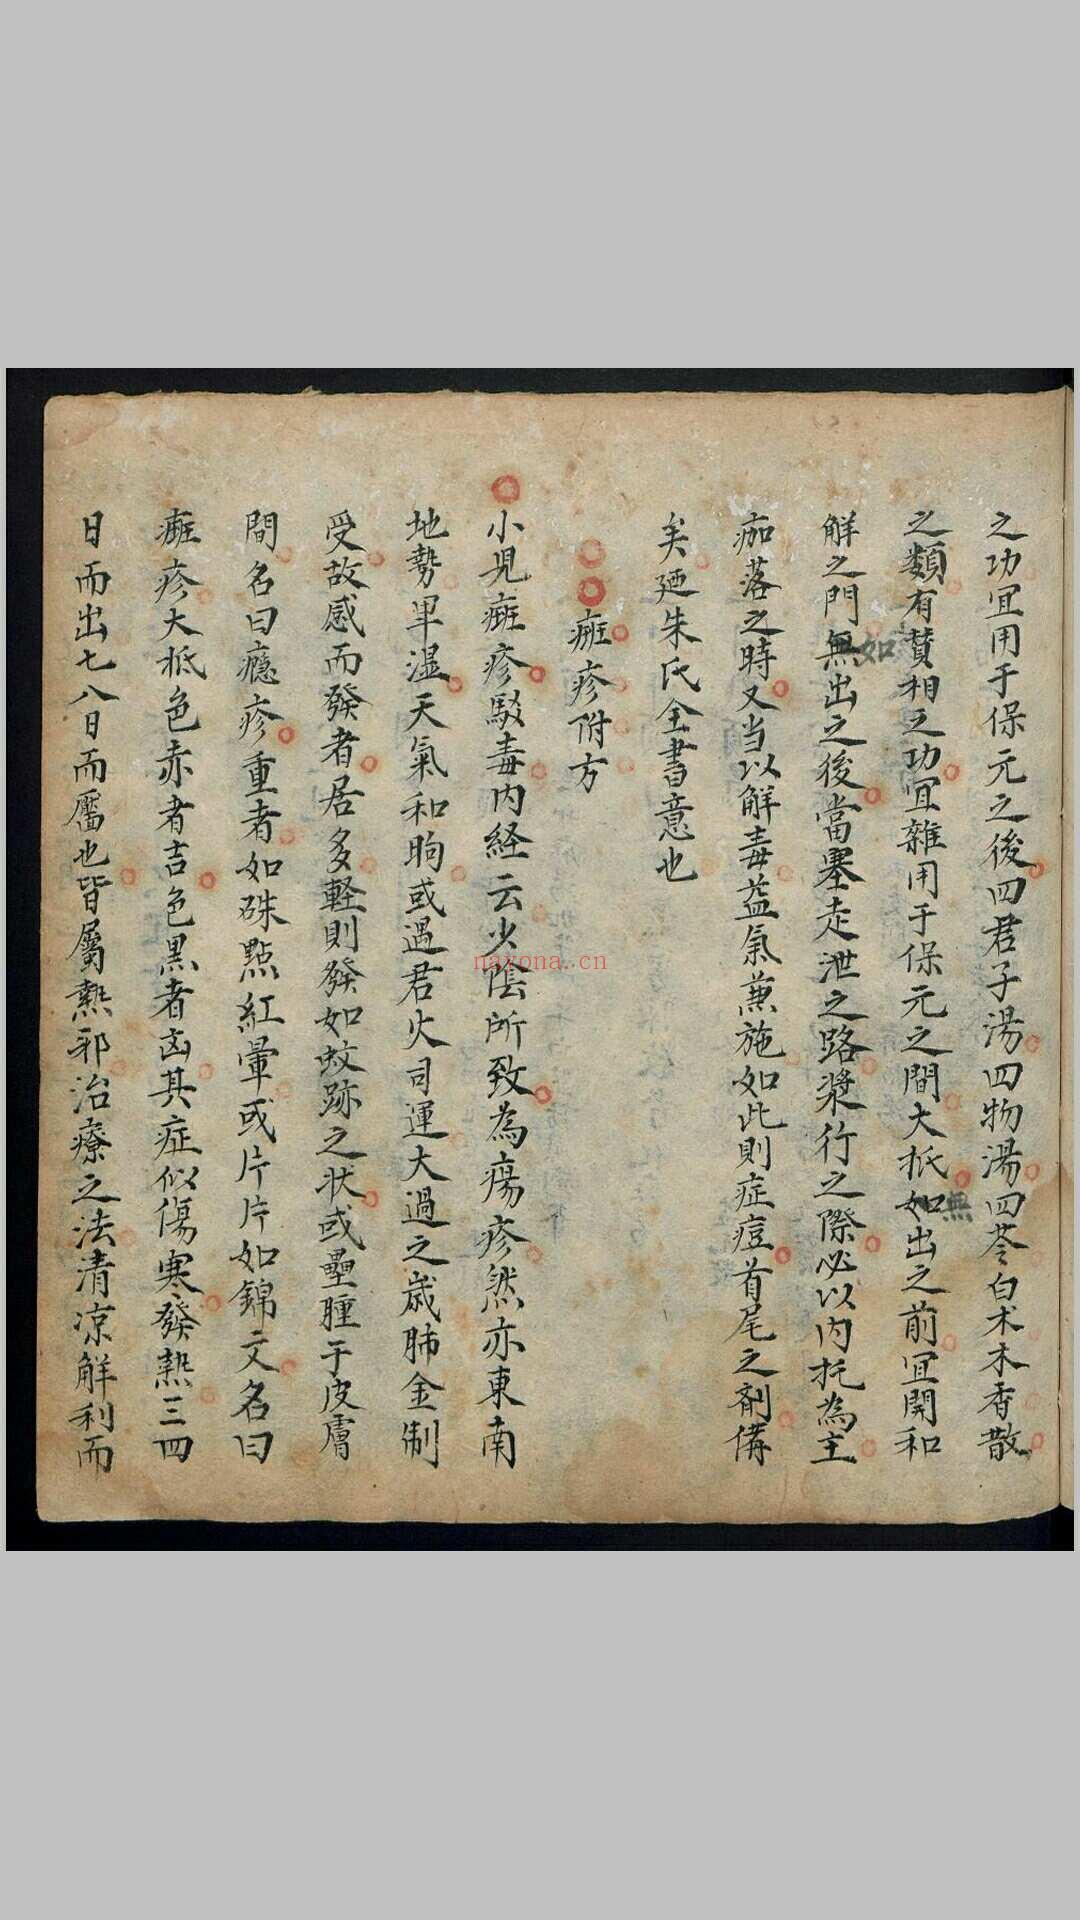 之功宜用于保元之後四君子湯四物湯四苓白术木香散
之類有贊相之功宜雜用于保元之間大抵如無出之前宜開和
解之門無如出之後當塞走泄之路漿行之際必以内托為主
痂落之時又当以解毒益氣兼施如此則症痘首尾之劑偹
矣廼朱氏全書意也
癍疹附方
小児癍疹駁毒内経云少陰所致為瘍疹然亦東南
地勢卑湿天氣和昫或遇君火司運大過之歳肺金制
受故感而發者居多軽則發如蚊跡之状或壘腫于皮膚
間名曰癮疹重者如硃㸃紅暈或片片如錦文名曰
癍疹大抵色赤者吉色黒者凶其症似傷寒發熱三四
日而出七八日而靨也皆屬熱邪治療之法清凉解利而
naxona.cn